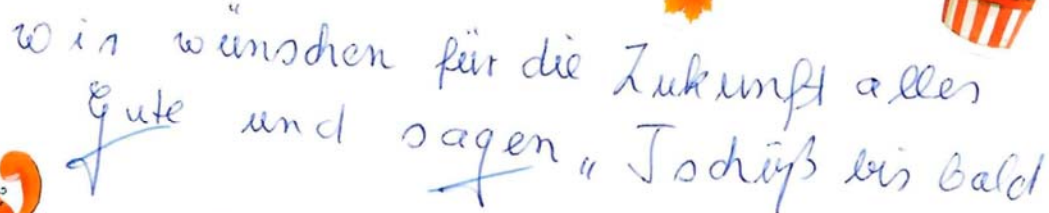 wir wünschen für die Zukunft alles
Gute und sagen „Tschüß bis bald